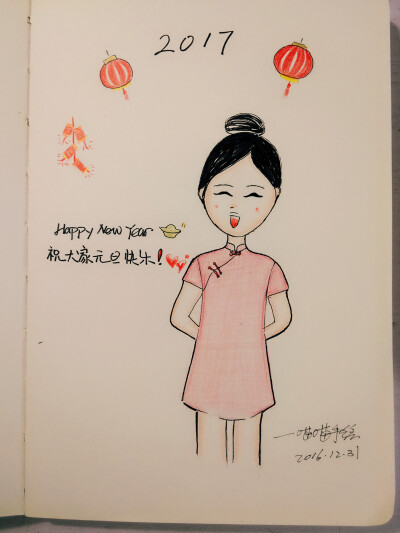 2017
Happy New Year
祝大家元旦快乐!
一喵喵手绘
2016.12.31